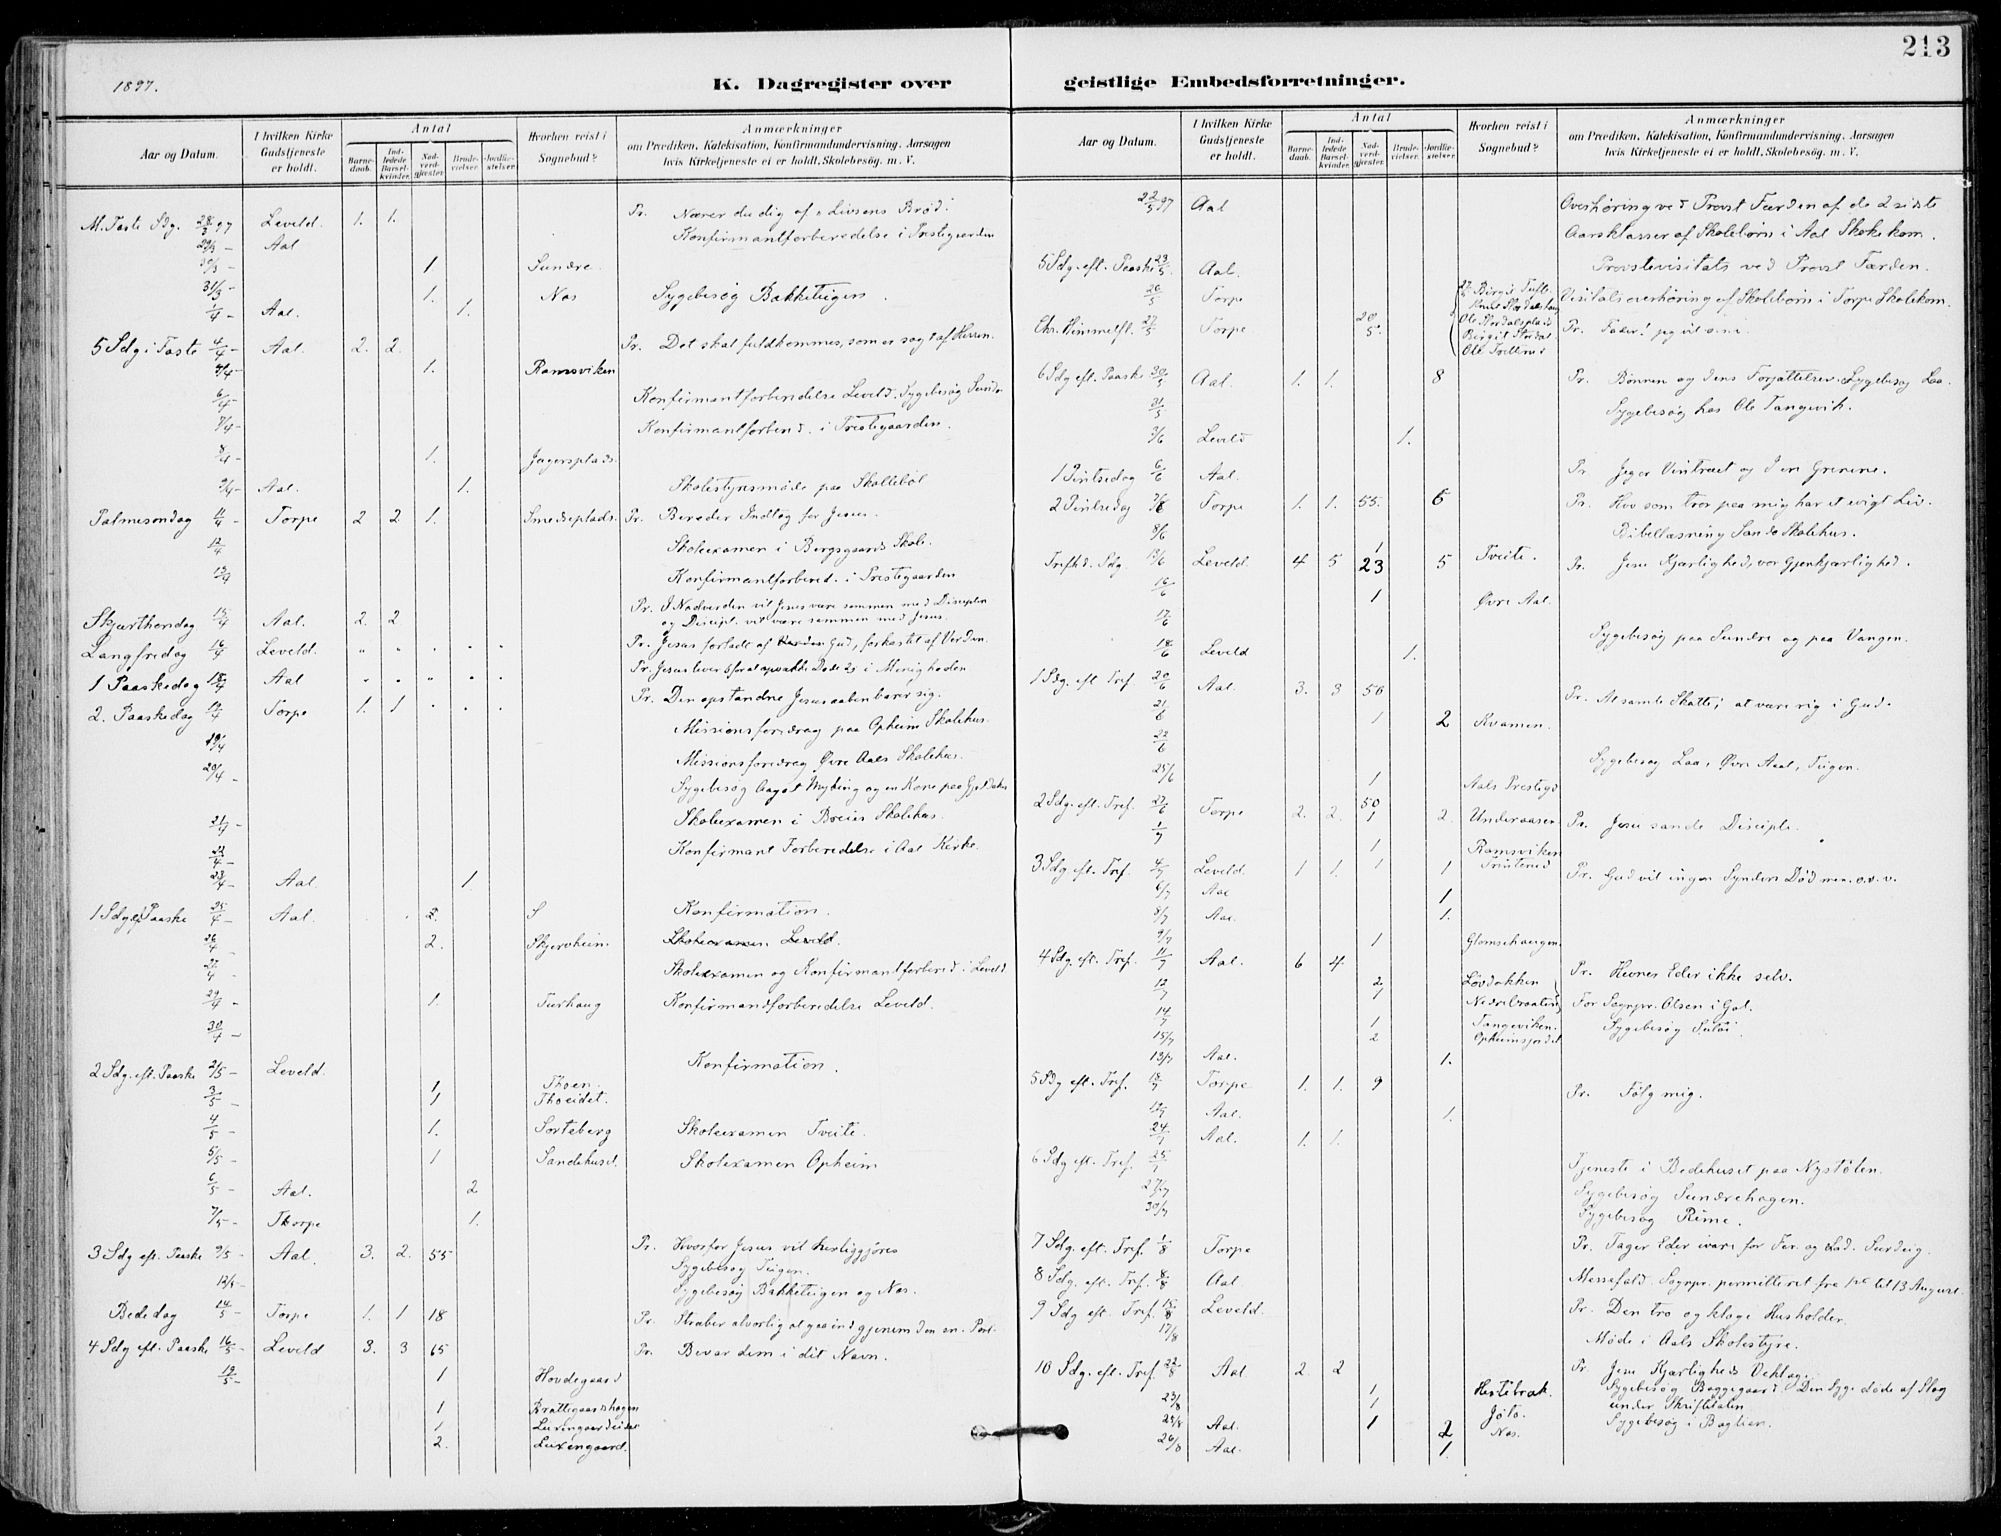 213
1897.
K. Dagregister over geistlige Embedsforretninger.
Aar og Datum.
I hvilken Kirke Gudstjeneste er holdt.
Antal
Barnedaab.
Indledede Barselkvinder.
Nadverdgjæster.
Brudevielser.
Jordfæstelser.
Hvorhen reist i Sognebud?
Anmærkninger
om Prædiken, Katekisation, Konfirmandundervisning, Aarsagen
hvis Kirketjeneste ei er holdt, Skolebesøg. m. V.
M. Faste Sdg. 28/3 97 Leveld. 1. 1. Pr. Nærer du dig af "Livsens Brød"?
29/3 - Aal Konfirmantforberedelse i Prestegaarden
30/3 - 1 Sundre.
31/3 - 1. Nos Sygebesøg Bakketeigen.
1/4 - Aal. 1.
5 Sdg i Faste 4/4 - Aal. 2. 2. Pr. Det skal fuldkommes, som er sagt af Herren.
4/4 - 1. Ramsviken
6/4 - Konfirmantforberedelse Leveld. Sygebesøg Sundre
7/4 - Konfirmantforbered. i Prestegaarden.
8/4 - 1. Jegersplads.
9/4 - Aal. 1. Skolestyresmøde paa Skollebøl
Palmesøndag 11/4 - Torpe 2 2 1. Smedsplads. Pr. Bereder Indtog for Jesus.
12/4 Skoleexamen i Bergsgaards Skole.
13/4 Konfirmantforbered. i Prestegaarden
Skjærthorsdag 15/4 Aal. 2. 2 Pr. I Nadverden vil Jesus være sammen med Disciplen
og Discipl. vil være sammen med Jesus.
Langfredag 16/4 Leveld. " " " " " Pr. Jesus forladt af Gud, forkastet af Verden.
1 Paaskedag 18/4 Aal " " " " " Pr. Jesus lever
2. Paaskedag 19/4 Torpe 1. 1 " " " Pr. Den opstandne Jesus aabenbarer sig.
Missionsforedrag paa Opheim Skolehus.
19/4 Missionsforedrag Øvre Aals Skolehus.
20/4 - Sygebesøg Aagot Myking og en Kone paa
21/4 Skoleexamen i Breies Skolehus.
22/4 - Konfirmant Forberedelse i Aal Kirke.
23/4 - Aal. 1
1 Sdg eft Paaske 25/4 - Aal. 2. S Konfirmation.
26/4 - 2. Skjervheim. Skoleexamen Leveld.
27/4 Skolexamen og Konfirmantforbered. i Leveld
29/4 - 1. Turhaug Konfirmandforberedelse Leveld.
30/4 -
2 Sdg. eft. Paaske 2/5 - Leveld. Konfirmation.
3/5 - 1 Thoen.
1 Thoeidet.
4/5 - 1. Sorteberg Skoleexamen Tveite.
5/5 - 1 Sandehuset. Skolexamen Opheim
6/5 - Aal. 2
7/5 - Thorpe 1.
3 Sdg eft. Paaske 9/5 - Aal. 3. 2. 55 Pr. Hvorfor Jesus vil herliggjøres
Sygebesøg Teigen.
12/5 - Sygebesøg Bakketeigen og Nos.
Bededag 14/5 - Torpe 1. 1 18 Pr. Stræber alvorlig at gaa ind gjenem den sn. Port.
4 Sdg eft. Paaske 16/5 - Leveld 3. 3 65 Pr. Bevar dem i dit Navn.
19/5 - 1 Hovdegaard
1 Brattegaardshagen
1 Luxengaardeidet
2. Luxengaard.
Aar og Datum.
I hvilken Kirke Gudstjeneste er holdt.
Antal
Barnedaab.
Indledede Barselkvinder.
Nadverdgjæster.
Brudevielser.
Jordfæstelser.
Hvorhen reist i Sognebud?
Anmærkninger
om Prædiken, Katekisation, Konfirmandundervisning, Aarsagen
hvis Kirketjeneste ei er holdt, Skolebesøg. m. V.
22/5 97 Aal Overhøring ved Provst Færden af de 2 sidste
Aarsklasser af Skolebørn i Aal Skolekom.
5 Sdg. eft. Paaske 23/5 Aal. Provstevisitats ved Provst Færden.
26/5 Torpe Visitatsoverhøring af Skolebørn i Torpe Skolekom.
Chr. Himmelfl. 27/5 Torpe 20 5 Birgit Pr. Fader! jeg vil
Birgit Stordal
6 Sdg eft. Paaske 30/5 Aal. 1. 1. 8 Pr. Bønnen og dens Forjættelser. Sygebesøg Laa.
31/5 Sygebesøg hos Ole Tangevik.
3/6 Leveld 1.
1 Pintsedag 6/6 Aal. Pr. Jeg er Vintræet og I ere Grenene.
2 Pintsedag 7/6 Torpe 1. 1. 55. 6 Pr. Hvo som tror paa mig har et evigt Liv.
8/6 Bibellæsning Sando Skolehus.
Trefhd. Sdg. 13/6 Leveld. 4 5 1 23 5 Tveite. Pr. Jesu Kjærlighed, vor Gjenkjærlighed.
16/6 1 Øvre Aal.
17/6 Sygebesøg paa Sundre og paa Vangen.
18/6 Leveld 1.
1 Sdg. eft Tref. 20/6 Aal. 3. 3 56 Pr. At samle Skatte; at være rig i Gud.
21/6 1 2 Kvamen.
22/6 Sygebesøg Laa, Øvre Aal, Teigen.
25/6 1 Aals Prestegd
2 Sdg. eft. Tref. 27/6 Torpe 2. 2. 50 1 2. Underaasen. Pr. Jesu sande Disciple.
1/7 1 Ramsviken
3 Sdg eft. Tref. 4/7 Leveld. 1 1. 1 1 Trinterud Pr. Gud vil ingen Synders Død men o.v.v.
6/7 Aal 1
8/7 Aal. 1.
9/7 1 Glomsehaugen
4 Sdg. eft. Tref. 11/7 Aal. 6 4 Pr. Hevnes Eder ikke selv.
12/7 2 Lövdokken
1 Nedrebraaten For Sognpr. Olsen i Gol.
14/7 1 Tangeviken. Sygebesøg
15/7 2 Opheimsjordet
13/7 Aal. 1.
5 Sdg eft. Tref. 18/7 Torpe 1. 1. 9 Pr. Følg mig.
19/7 Aal. 1.
24/7 Aal. 1. 1.
6 Sdg eft. Tref. 25/7 Tjeneste i Bedehuset paa Nystølen.
27/7 Sygebesøg Sundrehagen.
30/7 Sygebesøg Rime.
7 Sdg. eft. Tref. 1/8 Torpe Pr. Tager Eder ivare for Far. og Sad. Surdeig.
8 Sdg. eft. Tref. 8/8 Aal. Messefald. Sognpr. permitteret fra 1ste til 13 August.
9 Sdg eft. Tref. 15/8 Leveld. Pr. Den tro og kloge Husholder.
17/8 Møde i Aals Skolestyre.
10 Sdg. eft. Tref. 22/8 Aal 2. 2 Pr. Jesu Kjærligheds Veklage.
23/8 1 Hestebrak. Sygebesøg Baggegaard. Den Syge døde af Slag
1 Jøto. under Skriftetalen
25/8 Aal. 1 2 Nos. Sygebesøg i Baglien.
26/8 Aal. 1.